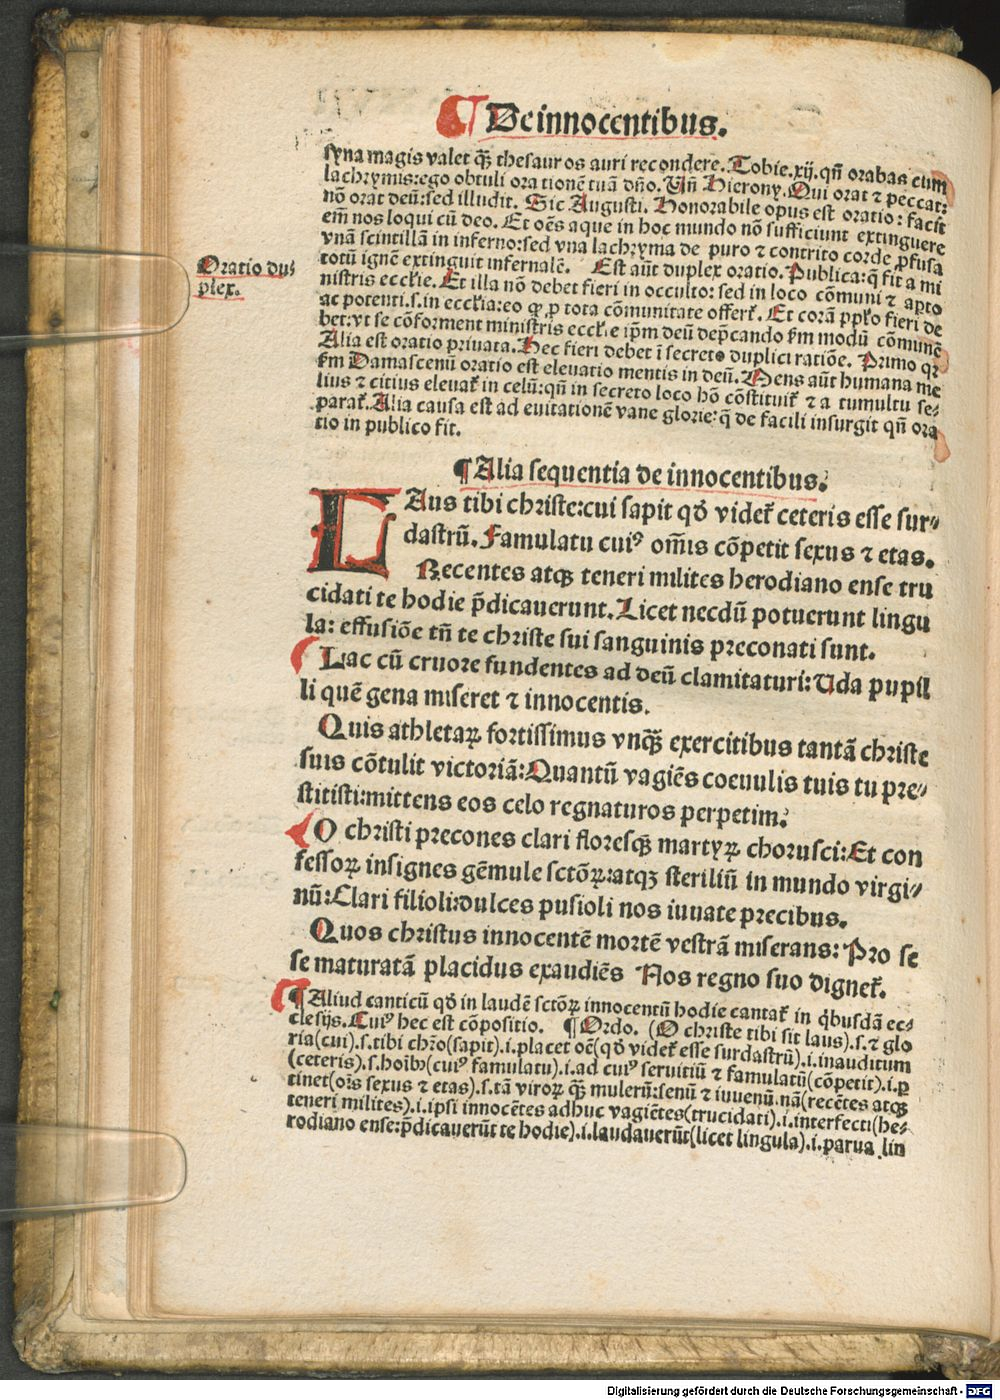 ¶ De innocentibus.
syna magis valet qȝ̃ thesauros auri recondere. Tobie.xij.qñ orabas cum
lachrymis:ego obtuli orationẽ tuã dño. Vñ Hierony. Qui orat ⁊ peccat:
nõ orat deũ:sed illudit. Sic Augusti. Honorabile opus est oratio: facit
em̃ nos loqui cũ deo. Et oẽs aque in hoc mundo nõ sufficiunt extinguere
vnã scintillã in inferno:sed vna lachryma de puro ⁊ contrito corde ꝓfusa
totũ ignẽ extinguit infernalẽ. Est aũt duplex oratio. Publica:q̃ fit a mi
nistris ecclie. Et illa nõ debet fieri in occulto: sed in loco cõmuni ⁊ apto
ac potenti.s.in ecclia:eo ꝙ ꝓ tota cõmunitate offertꝰ. Et corã pplo fieri de
bet:vt se cõforment ministris ecclie ip̃m deũ dep̃cando ẜm modũ cõmunẽ
Alia est oratio priuata. Hec fieri debet ĩ secreto duplici ratiõe. Primo qꝛ
ẜm Damascenũ oratio est eleuatio mentis in deũ. Mens aũt humana me
lius ⁊ citius eleuat᷑ in celũ:qñ in secreto loco hõ cõstituit᷑ ⁊ a tumultu se⸗
parat᷑. Alia causa est ad euitationẽ vane glorie:q̃ de facili insurgit qñ ora
tio in publico fit.
Oratio du⸗
plex.
¶ Alia sequentia de innocentibus.
LAus tibi christe:cui sapit qð videt᷑ ceteris esse sur⸗
dastrũ. Famulatu cuiꝰ om̃is cõpetit sexus ⁊ etas.
Recentes atqȝ teneri milites herodiano ense tru
cidati te hodie p̃dicauerunt. Licet necdũ potuerunt lingu
la: effusiõe tñ te christe sui sanguinis preconati sunt.
Lac cũ cruore fundentes ad deũ clamitaturi: Uda pupil
li quẽ gena miseret ⁊ innocentis.
Quis athletaꝝ fortissimus vnqȝ̃ exercitibus tantã christe
suis cõtulit victoriã: Quantũ vagiẽs coeuulis tuis tu pre⸗
stitisti:mittens eos celo regnaturos perpetim.
O christi precones clari floresqȝ martyꝝ chorusci: Et con
fessoꝝ insignes gẽmule sctõꝝ:atqȝ steriliũ in mundo virgi⸗
nũ: Clari filioli:dulces pusioli nos iuuate precibus.
Quos christus innocentẽ mortẽ vestrã miserans: Pro se
se maturatã placidus exaudiẽs Nos regno suo dignet᷑.
¶ Aliud canticũ qð in laudẽ sctõꝝ innocentũ hodie cantat᷑ in q̇busdã ec⸗
clesijs. Cuiꝰ hec est cõpositio. ¶ Ordo. (O christe tibi sit laus).s.⁊ glo
ria(cui).s.tibi chr̃o(sapit).i.placet oẽ(qð videt᷑ esse surdastrũ).i.inauditum
(ceteris).s.hoĩbꝰ(cuiꝰ famulatu).i.ad cuiꝰ seruitiũ ⁊ famulatũ(cõpetit).i.ꝑ
tinet(oĩs sexus ⁊ etas).s.tã viroꝝ qȝ̃ mulerũ:senũ ⁊ iuuenũ.nã(recẽtes atqȝ
teneri milites).i.ipsi innocẽtes adhuc vagiẽtes(trucidati).i.interfecti(he⸗
rodiano ense:p̃dicauerũt te hodie).i.laudauerũt(licet lingula).i.parua lin
Digitalisierung gefördert durch die Deutsche Forschungsgemeinschaft - DFG